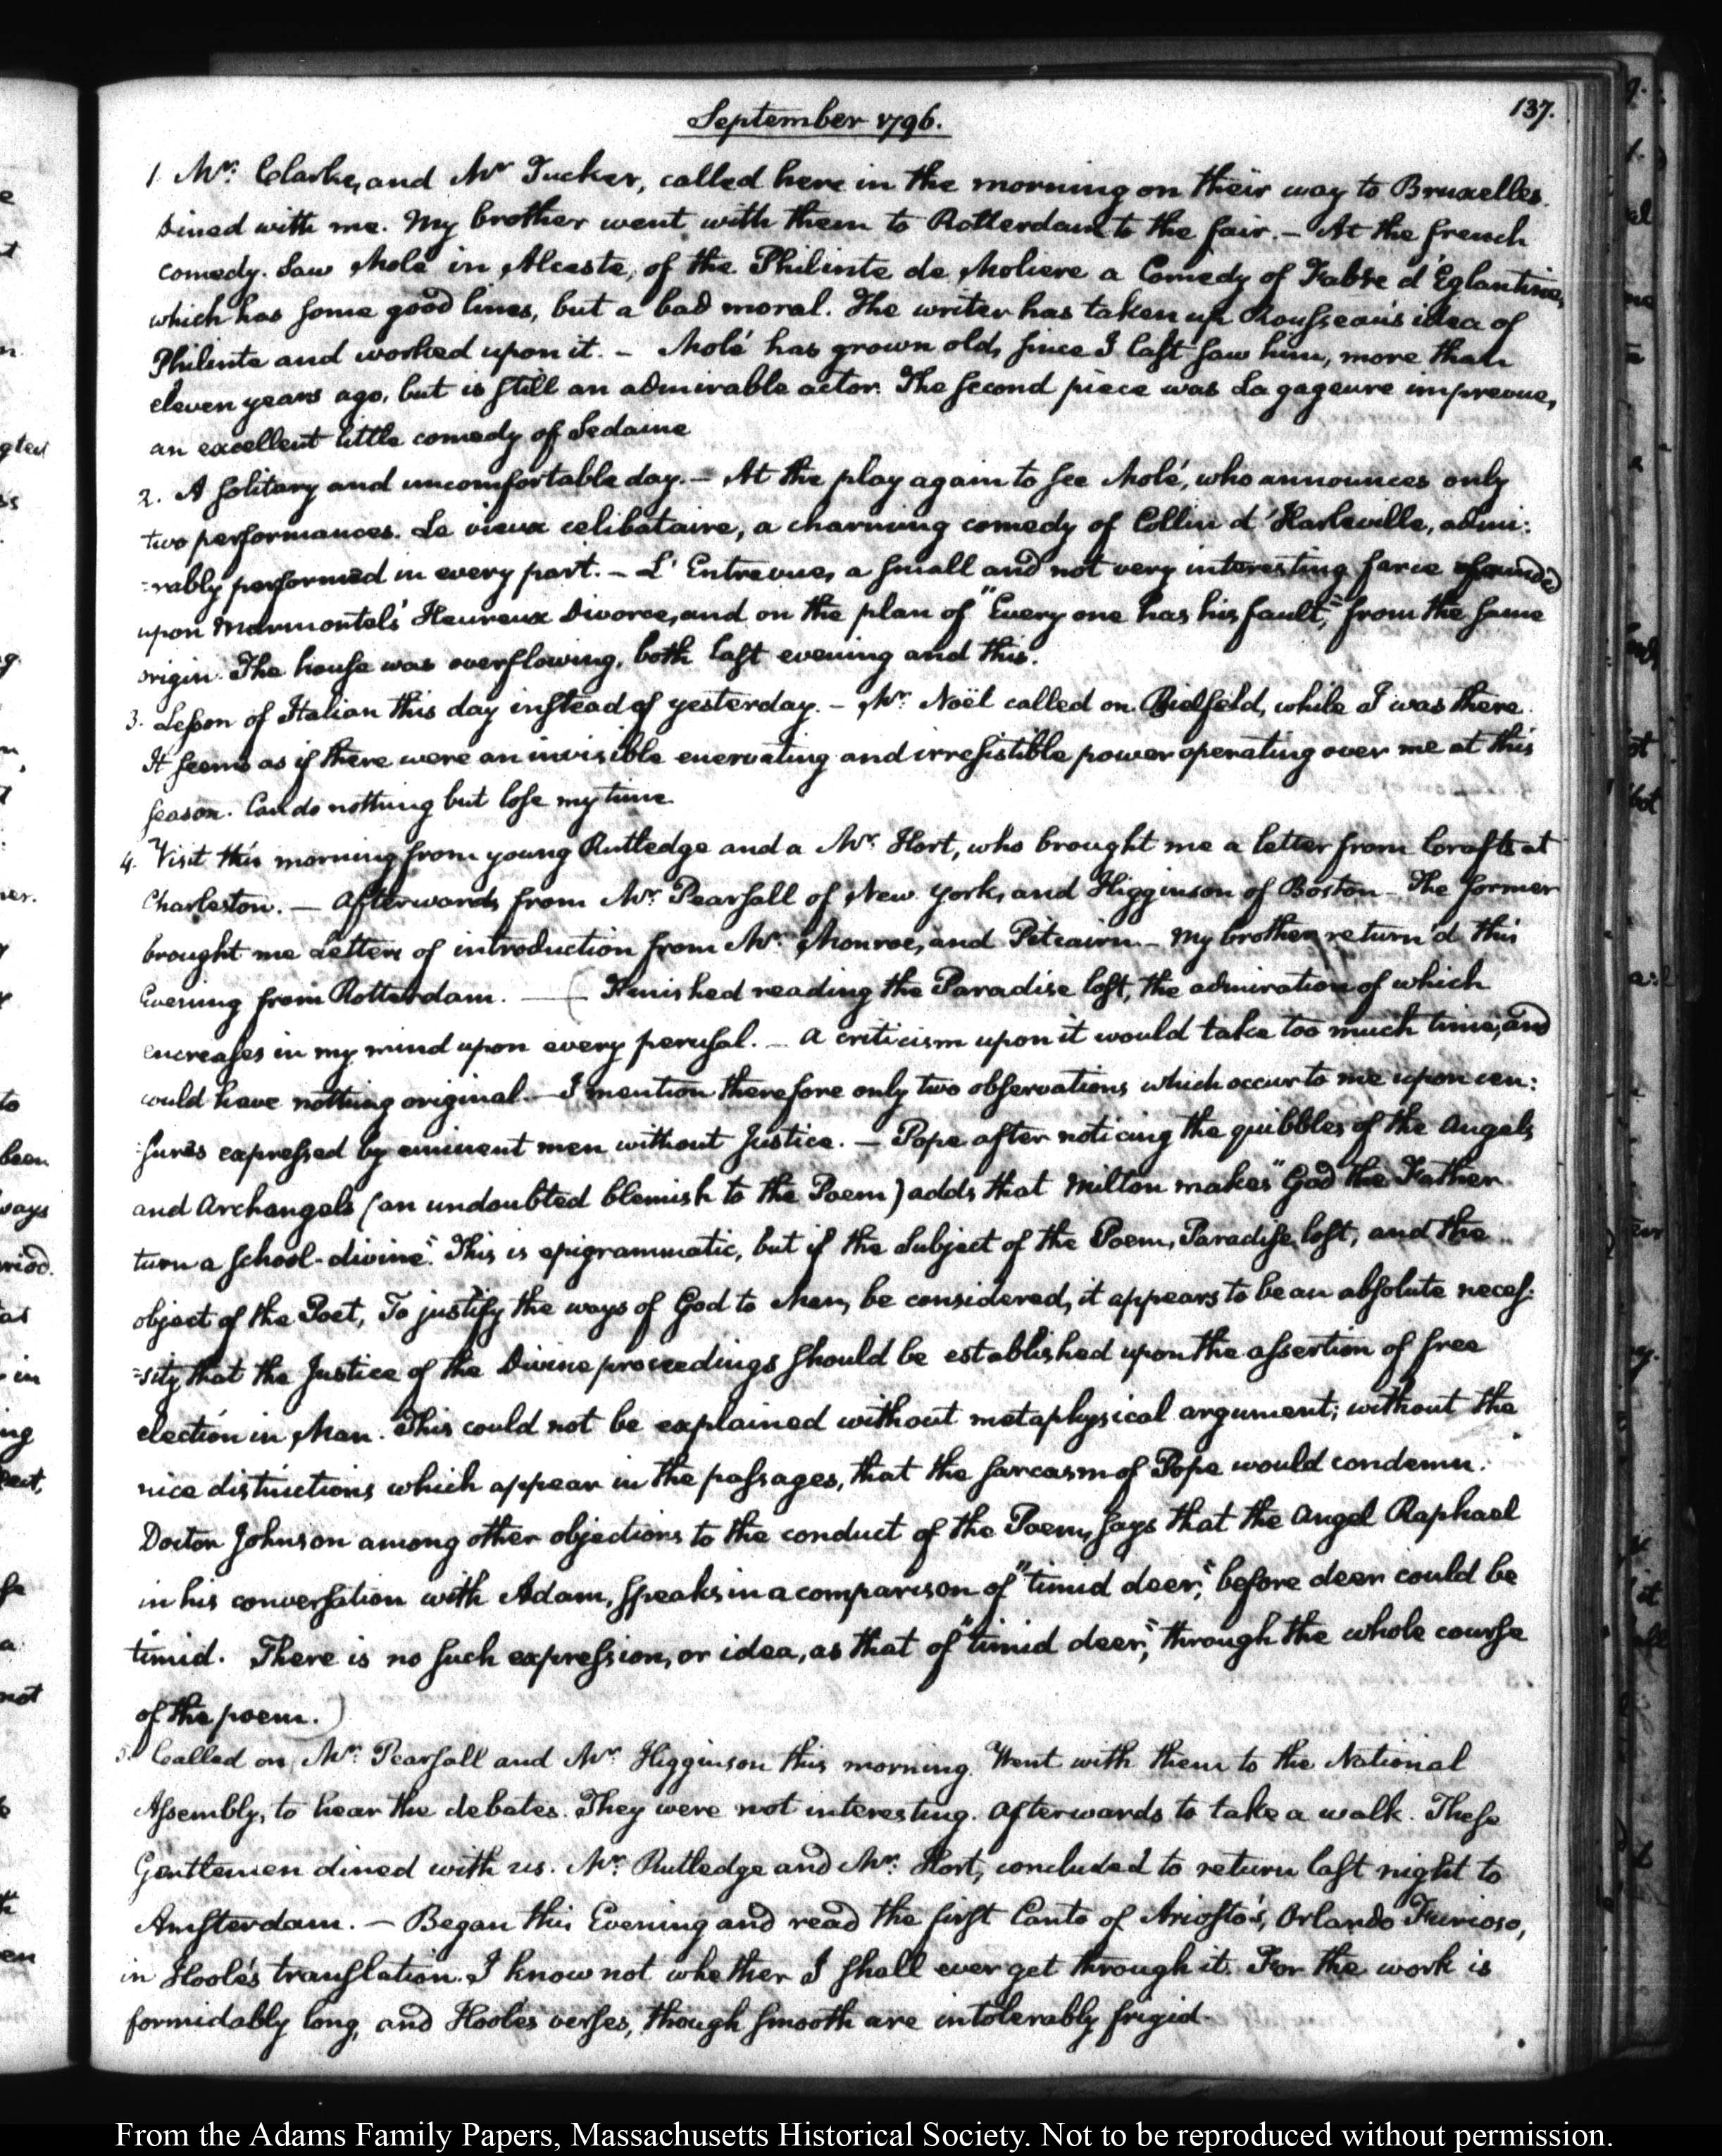 September 1796.
137.
1. Mr. Clarke, and Mr Tucker, called here in the morning on their way to Bruxelles.
Dined with me. My brother went with them to Rotterdam to the fair. — At the french
comedy. Saw Molé in Alceste, of the Philinte de Moliere a Comedy of Fabre d'Eglantine,
which has some good lines, but a bad moral. The writer has taken up Rousseau's idea of
Philinte and worked upon it. — Molé has grown old, since I last saw him, more than
eleven years ago, but is still an admirable actor. The second piece was La gageure imprevue,
an excellent little comedy of Sedaine
2. A solitary and uncomfortable day. — At the play again to see Molé, who announces only
two performances. Le vieux celibataire, a charming comedy of Collin d'Harleville, admi:
:rably performed in every part. — L'Entrevue, a small and not very interesting farce founded
upon Marmontel's Heureux Divorce, and on the plan of "Every one has his fault," from the same
origin. The house was overflowing, both last evening and this.
3. Lesson of Italian this day instead of yesterday. — Mr. Noël called on Bielfeld, while I was there.
It seems as if there were an invisible enervating and irresistible power operating over me at this
season. Can do nothing but lose my time.
4. Visit this morning from young Rutledge and a Mr. Hort, who brought me a letter from Crafts at
Charleston. — Afterwards from Mr. Pearsall of New York, and Higginson of Boston — The former
brought me Letters of introduction from Mr. Monroe, and Pitcairn. — My brother return'd this
Evening from Rotterdam. — (Finished reading the Paradise lost, the admiration of which
encreases in my mind upon every perusal. — A criticism upon it would take too much time, and
could have nothing original. — I mention therefore only two observations which occur to me upon cen:
:sures expressed by eminent men without Justice. — Pope after noticing the quibbles of the Angels
and Archangels (an undoubted blemish to the Poem) adds that Milton makes "God the Father
turn a school-divine." This is epigrammatic, but if the Subject of the Poem, Paradise lost, and the
object of the Poet, To justify the ways of God to Men, be considered, it appears to be an absolute neces:
:sity that the Justice of the Divine proceedings should be established upon the assertion of free
election in Man. This could not be explained without metaphysical argument; without the
nice distinctions which appear in the passages, that the sarcasm of Pope would condemn.
Doctor Johnson among other objections to the conduct of the Poem, says that the Angel Raphael
in his conversation with Adam, speaks in a comparison of "timid deer," before deer could be
timid. There is no such expression, or idea, as that of "timid deer," through the whole course
of the poem.)
5. Called on Mr. Pearsall and Mr. Higginson this morning. Went with them to the National
Assembly, to hear the debates. They were not interesting. Afterwards to take a walk. These
Gentlemen dined with us. Mr. Rutledge and Mr. Hort, concluded to return last night to
Amsterdam. — Began this Evening and read the first Canto of Ariosto's, Orlando Furioso,
in Hoole's translation. I know not whether I shall ever get through it. For the work is
formidably long, and Hoole's verses, though smooth are intolerably frigid.
From the Adams Family Papers, Massachusetts Historical Society. Not to be reproduced without permission.